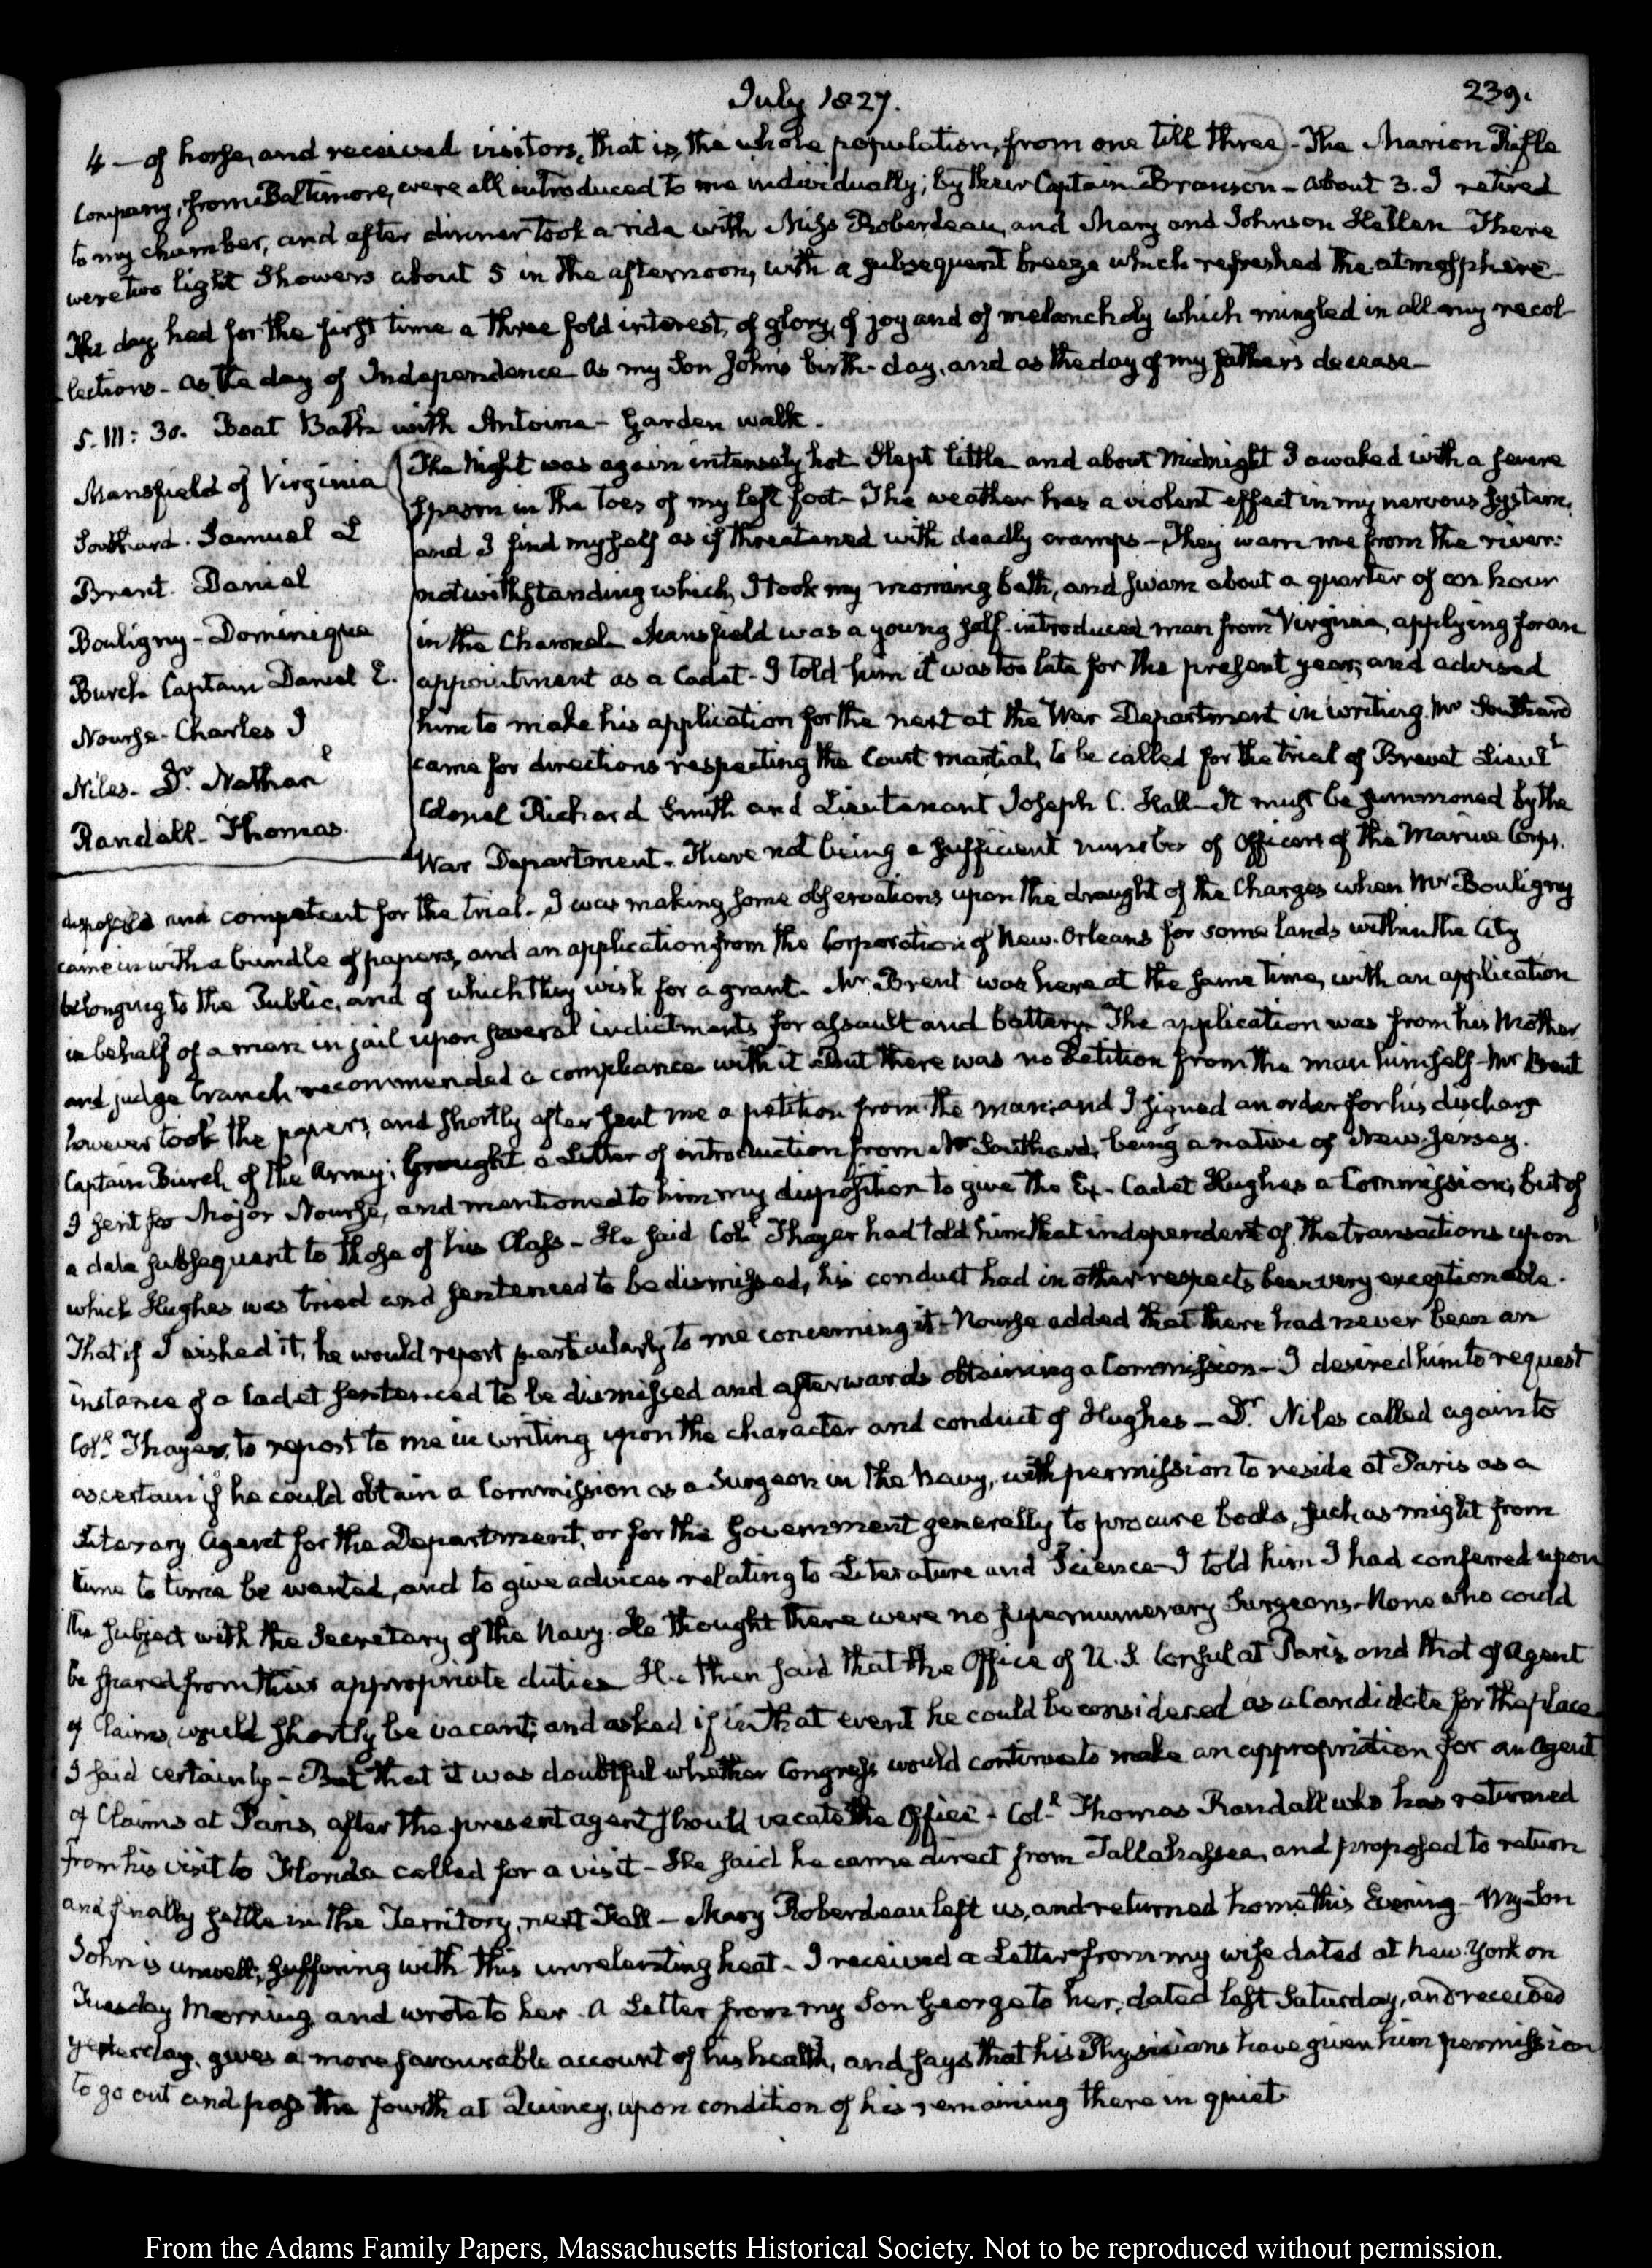 July 1827.
239.
4 — of horse, and received visitors, that is, the whole population, from one till three - The Marion Rifle
Company, from Baltimore, were all introduced to me individually; by their Captain Branson - About 3. I retired
to my chamber, and after dinner took a ride with Miss Roberdeau, and Mary and Johnson Hellen There
were two light showers about 5 in the afternoon, with a subsequent breeze which refreshed the atmosphere
The day had for the first time a three fold interest, of glory, of joy and of melancholy which mingled in all my recol-
lections - as the day of Independence as my Son John's birth-day, and as the day of my father's decease -
5. III: 30. Boat Bath with Antoine - Garden walk.
Mansfield of Virginia
Southard. Samuel L
Brent. Daniel
Bouligny - Dominique
Burch Captain Daniel E.
Nourse - Charles J
Niles - Dr. Nathanl
Randall - Thomas.
The Night was again intensely hot Slept little and about Midnight I awaked with a severe
spasm in the toes of my left foot - The weather has a violent effect in my nervous system,
and I find myself as if threatened with deadly cramps - They warn me from the river:
notwithstanding which, I took my morning bath, and swam about a quarter of an hour
in the Channel Mansfield was a young self-introduced man from Virginia, applying for an
appointment as a Cadet - I told him it was too late for the present year, and advised
him to make his application for the next at the War Department in writing. Mr Southard
came for directions respecting the Court martial, to be called for the trial of Brevet Lieutt
Colonel Richard Smith and Lieutenant Joseph C. Hall - It must be summoned by the
War Department - There not being a sufficient number of Officers of the Marine Corps.
disposable and competent for the trial - I was making some observations upon the draught of the Charges when Mr Bouligny
came in with a bundle of papers, and an application from the Corporation of New-Orleans for some lands within the City
belonging to the Public, and of which they wish for a grant - Mr Brent was here at the same time, with an application
in behalf of a man in jail upon several indictments for assault and battery. The application was from his Mother
and judge Cranch recommended a compliance with it But there was no Petition from the man himself - Mr Brent
however took the papers, and shortly after sent me a petition from the man; and I signed an order for his discharge
Captain Burch of the Army; brought a Letter of introduction from Mr Southard, being a native of New-Jersey.
I sent for Major Nourse, and mentioned to him my disposition to give the Ex-Cadet Hughes a Commission; but of
a date subsequent to those of his Class - He said Coll Thayer had told him that independent of the transactions upon
which Hughes was tried and sentenced to be dismissed, his conduct had in other respects been very exceptionable.
That if I wished it, he would report particularly to me concerning it - Nourse added that there had never been an
instance of a Cadet sentenced to be dismissed and afterwards obtaining a Commission - I desired him to request
Coll. Thayer, to report to me in writing upon the character and conduct of Hughes - Dr. Niles called again to
ascertain if he could obtain a Commission as a Surgeon in the Navy, with permission to reside at Paris as a
Literary Agent for the Department, or for the Government generally to procure books, such as might from
time to time be wanted, and to give advices relating to Literature and Science - I told him I had conferred upon
the subject with the Secretary of the Navy. He thought there were no supernumerary Surgeons - None who could
be spared from their appropriate duties He then said that the Office of U. S. Consul at Paris, and that of Agent
of Claims, would shortly be vacant; and asked if in that event he could be considered as a Candidate for the place.
I said certainly - But that it was doubtful whether Congress would continue to make an appropriation for an Agent
of Claims at Paris, after the present agent should vacate the Office - Coll. Thomas Randall who has returned
from his visit to Florida called for a visit - He said he came direct from Tallahassee, and proposed to return
and finally settle in the Territory, next Fall - Mary Roberdeau left us, and returned home this Evening - My Son
John is unwell; suffering with this unrelenting heat - I received a Letter from my wife dated at New-York on
Tuesday Morning and wrote to her. A Letter from my Son George to her, dated last Saturday, and received
yesterday, gives a more favourable account of his health, and says that his Physicians have given him permission
to go out and pass the fourth at Quincy, upon condition of his remaining there in quiet
From the Adams Family Papers, Massachusetts Historical Society. Not to be reproduced without permission.